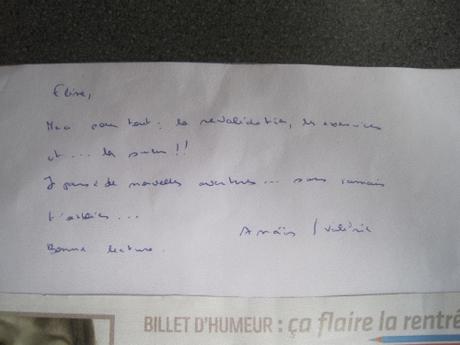 Elise,
Merci pour tout : la revalidation, les exercices
et ... les !!
Je à de nouvelles aventures ... sans jamais
t'oublier ...
Bonne lecture.
Anaïs / Valérie
BILLET D'HUMEUR : ça flaire la rentré